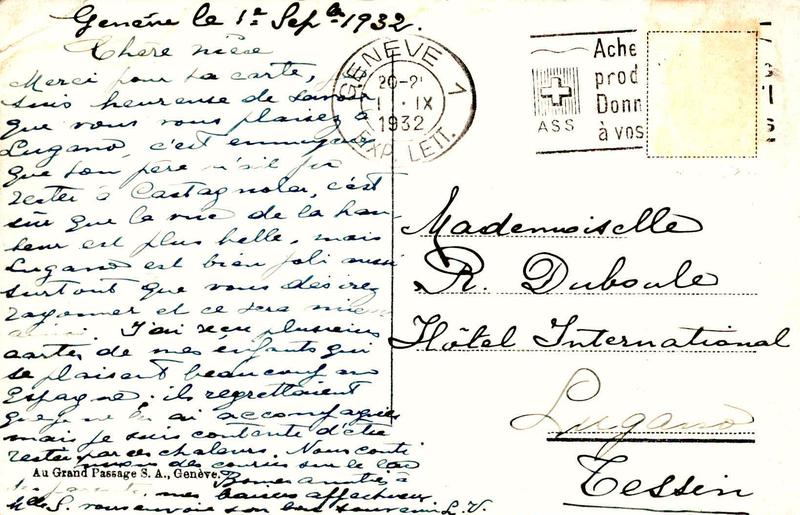 Genève le 1er Sepbre 1932.
Chère nièce
Merci pour ta carte, je
suis heureuse de savoir
que vous vous plaisez à
Lugano, c'est ennuyeux
que ton père n'ait pu
rester à Castagnola, c'est
sûr que la vue de la hau-
teur est plus belle, mais
Lugano est bien joli aussi
surtout que vous désirez
rayonner et ce sera mieux
ainsi. J'ai reçu plusieurs
cartes de mes enfants qui
se plaisent beaucoup en
Espagne. ils regrettaient
que je ne les ai accompagnés
mais je suis contente d'être
restée par ces chaleurs. Nous conti
nuons des courses sur le lac
Bonnes amitiés à
tes parents, mes baisers affectueux
Mlle S. vous envoie son bon souvenir L. V.
Au Grand Passage S. A., Genève.
GENÈVE 1
20-21
1. IX
1932
EXP. LETT.
ASS
Ache
prod
Donn
à vos
Mademoiselle
R. Duboule
Hôtel International
Lugano
Tessin